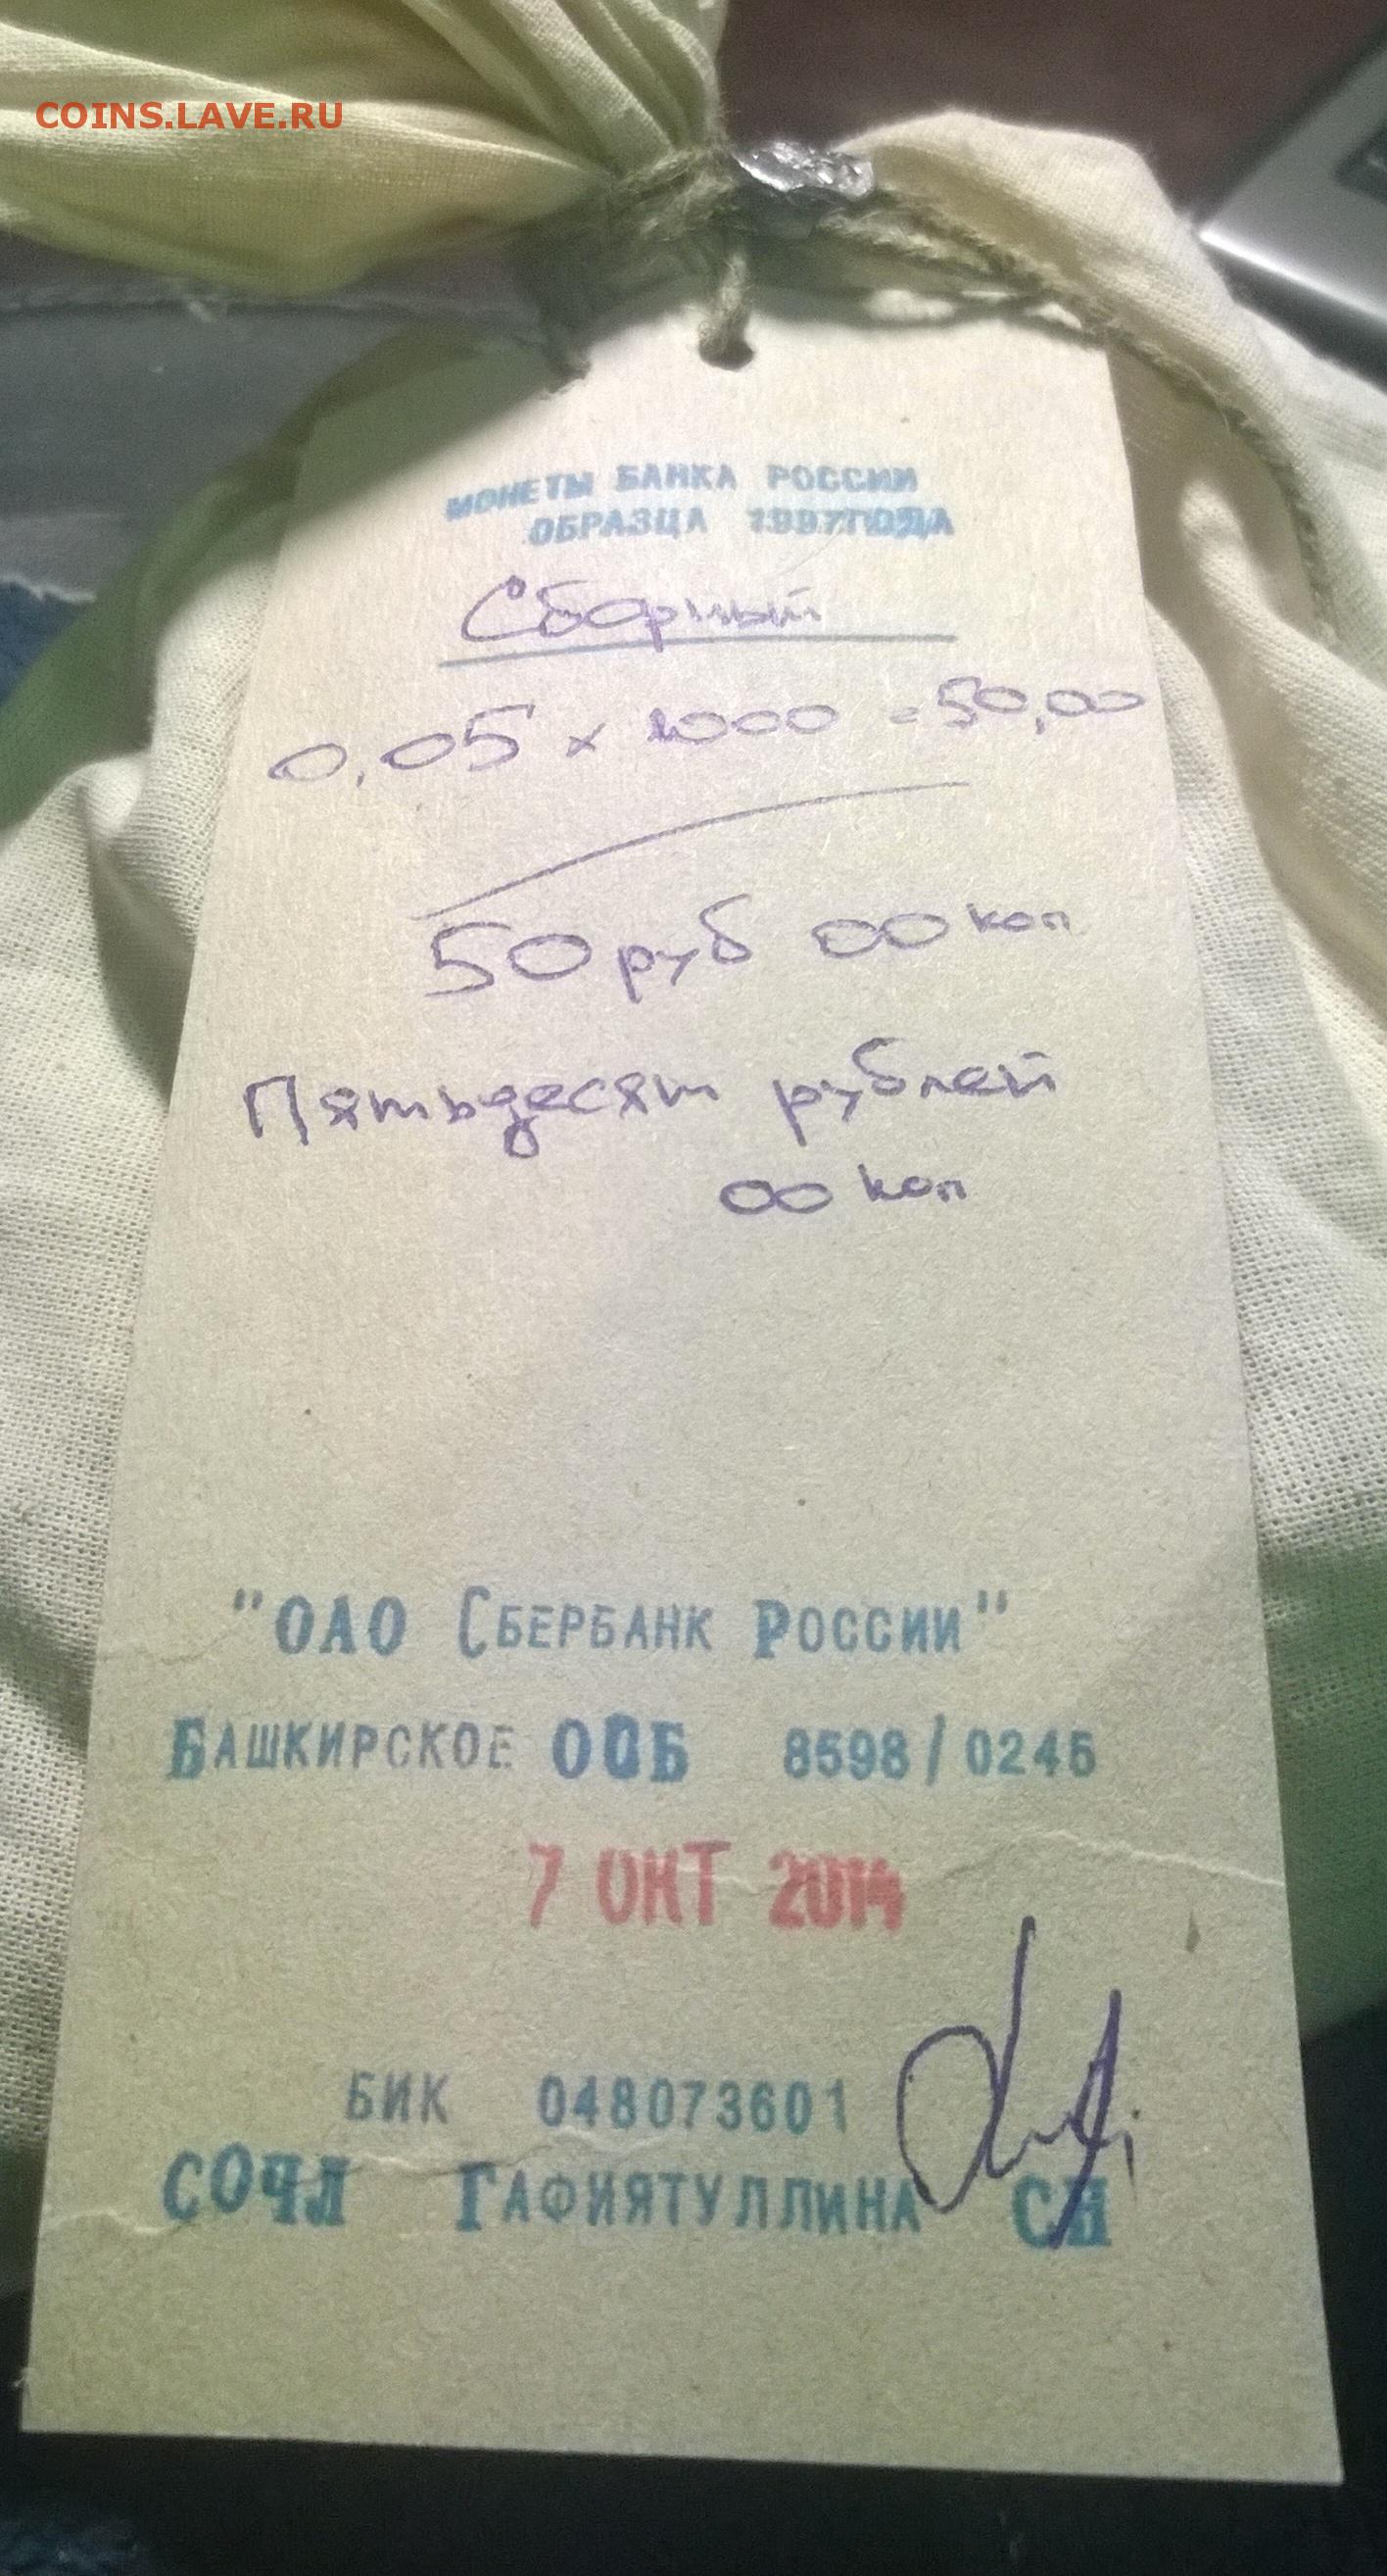 COINS.LAVE.RU
МОНЕТЫ БАНКА РОССИИ
ОБРАЗЦА 1997ГОДА
Сборный
0,05 x 1000 = 50,00
50 руб 00 коп
Пятьдесят рублей
00 коп
"ОАО СБЕРБАНК РОССИИ"
БАШКИРСКОЕ ОСБ 8598/0245
7 ОКТ 2014
БИК 048073601
СОЧЛ ГАФИЯТУЛЛИНА СН